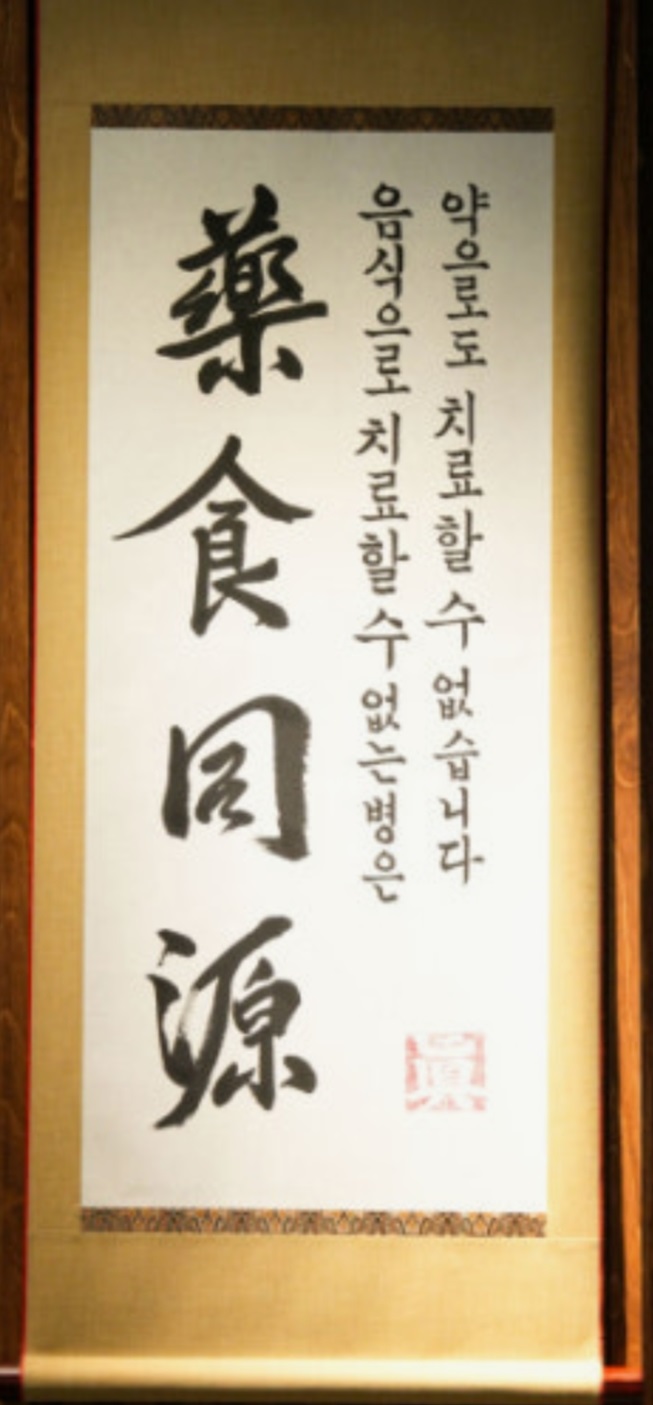 藥食同源
음식으로 치료할 수 없는 병은
약으로도 치료할 수 없습니다